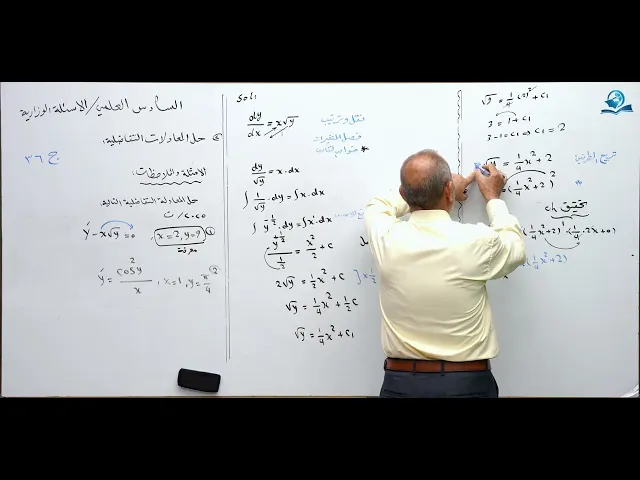 السادس العلمي / الاسئلة الوزارية
حل المعادلات التفاضلية:
ج ٣٦
الامثلة والملاحظات:
حل المعادلة التفاضلية التالية
y' - x√y = 0 , x=2, y=9 ①
y' = cos²y / x , x=1, y=π/4 ②
Sol:
dy/dx = x√y
فصل المتغيرات
dy/√y = x·dx
∫ 1/√y · dy = ∫x·dx
∫ y^(-1/2) · dy = ∫x·dx
y^(1/2) / (1/2) = x²/2 + c
2√y = 1/2 x² + c ] × 1/2
√y = 1/4 x² + 1/2 c
√y = 1/4 x² + c₁
√9 = 1/4 (2)² + c₁
3 = 1 + c₁
3-1 = c₁ ⇒ c₁ = 2
√y = 1/4 x² + 2
(1/4 x² + 2)²
تحقيق ch
(1/4 x² + 2)¹ · (1/4 · 2x + 0)
(1/4 x² + 2)